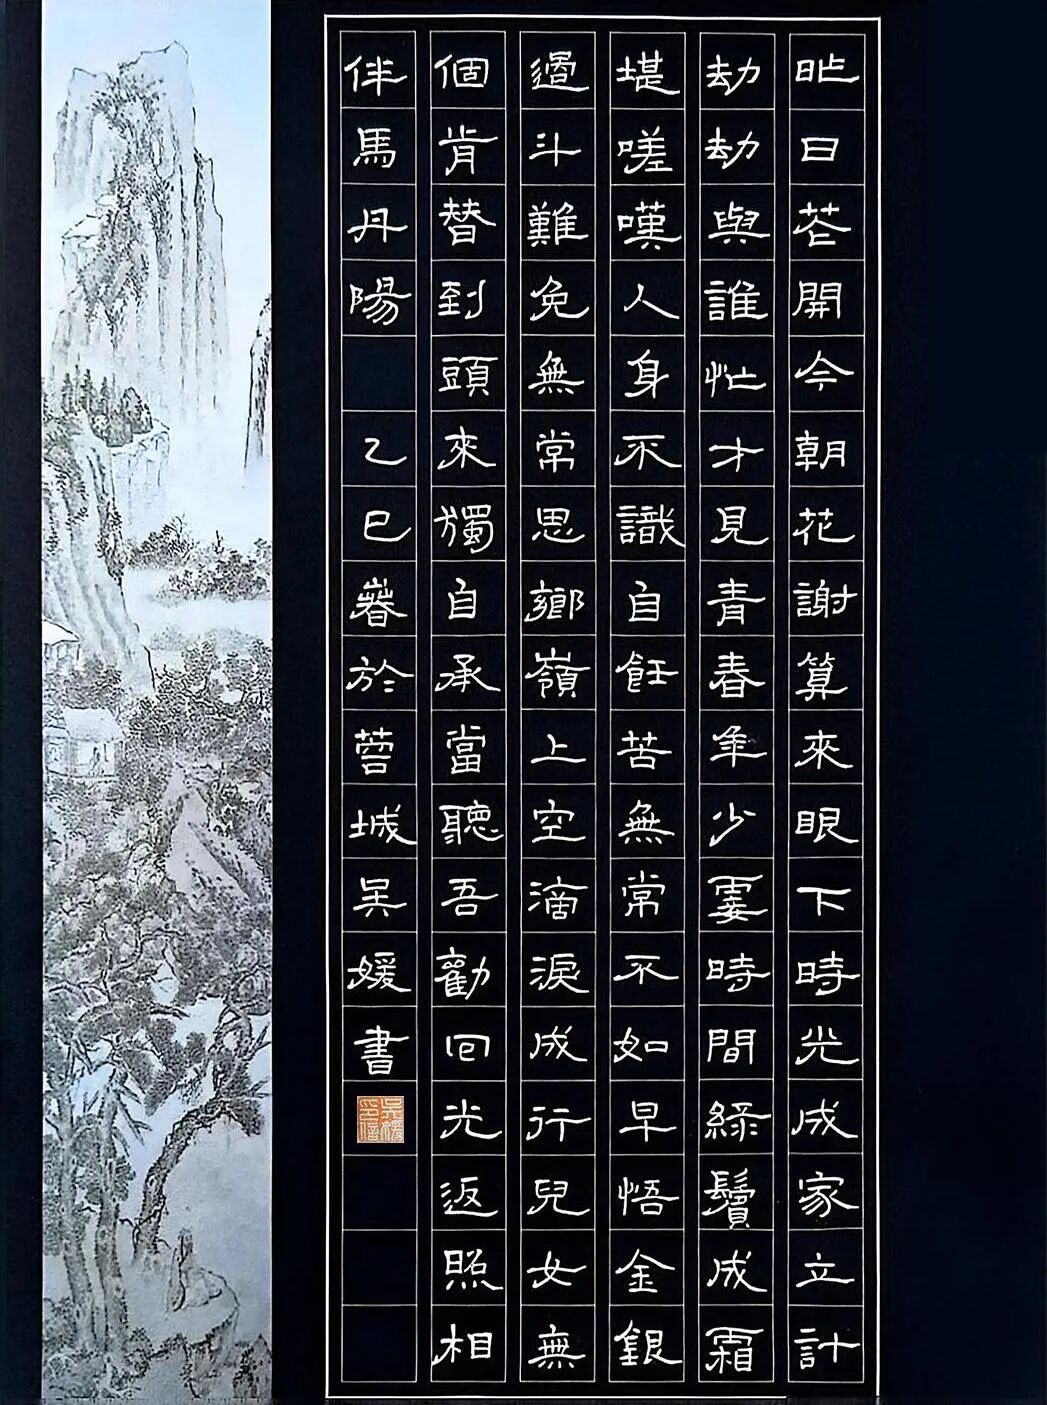 昨日花開今朝花謝算來眼下時光成家立計
劫劫與誰忙才見青春年少霎時間綠鬢成霜
堪嗟嘆人身不識自飪苦無常不如早悟金銀
過斗難免無常思鄉嶺上空滴淚成行兒女無
個肯替到頭來獨自承當聽吾勸回光返照相
伴馬丹陽 乙巳春於莒城吴媛書
吴媛印信